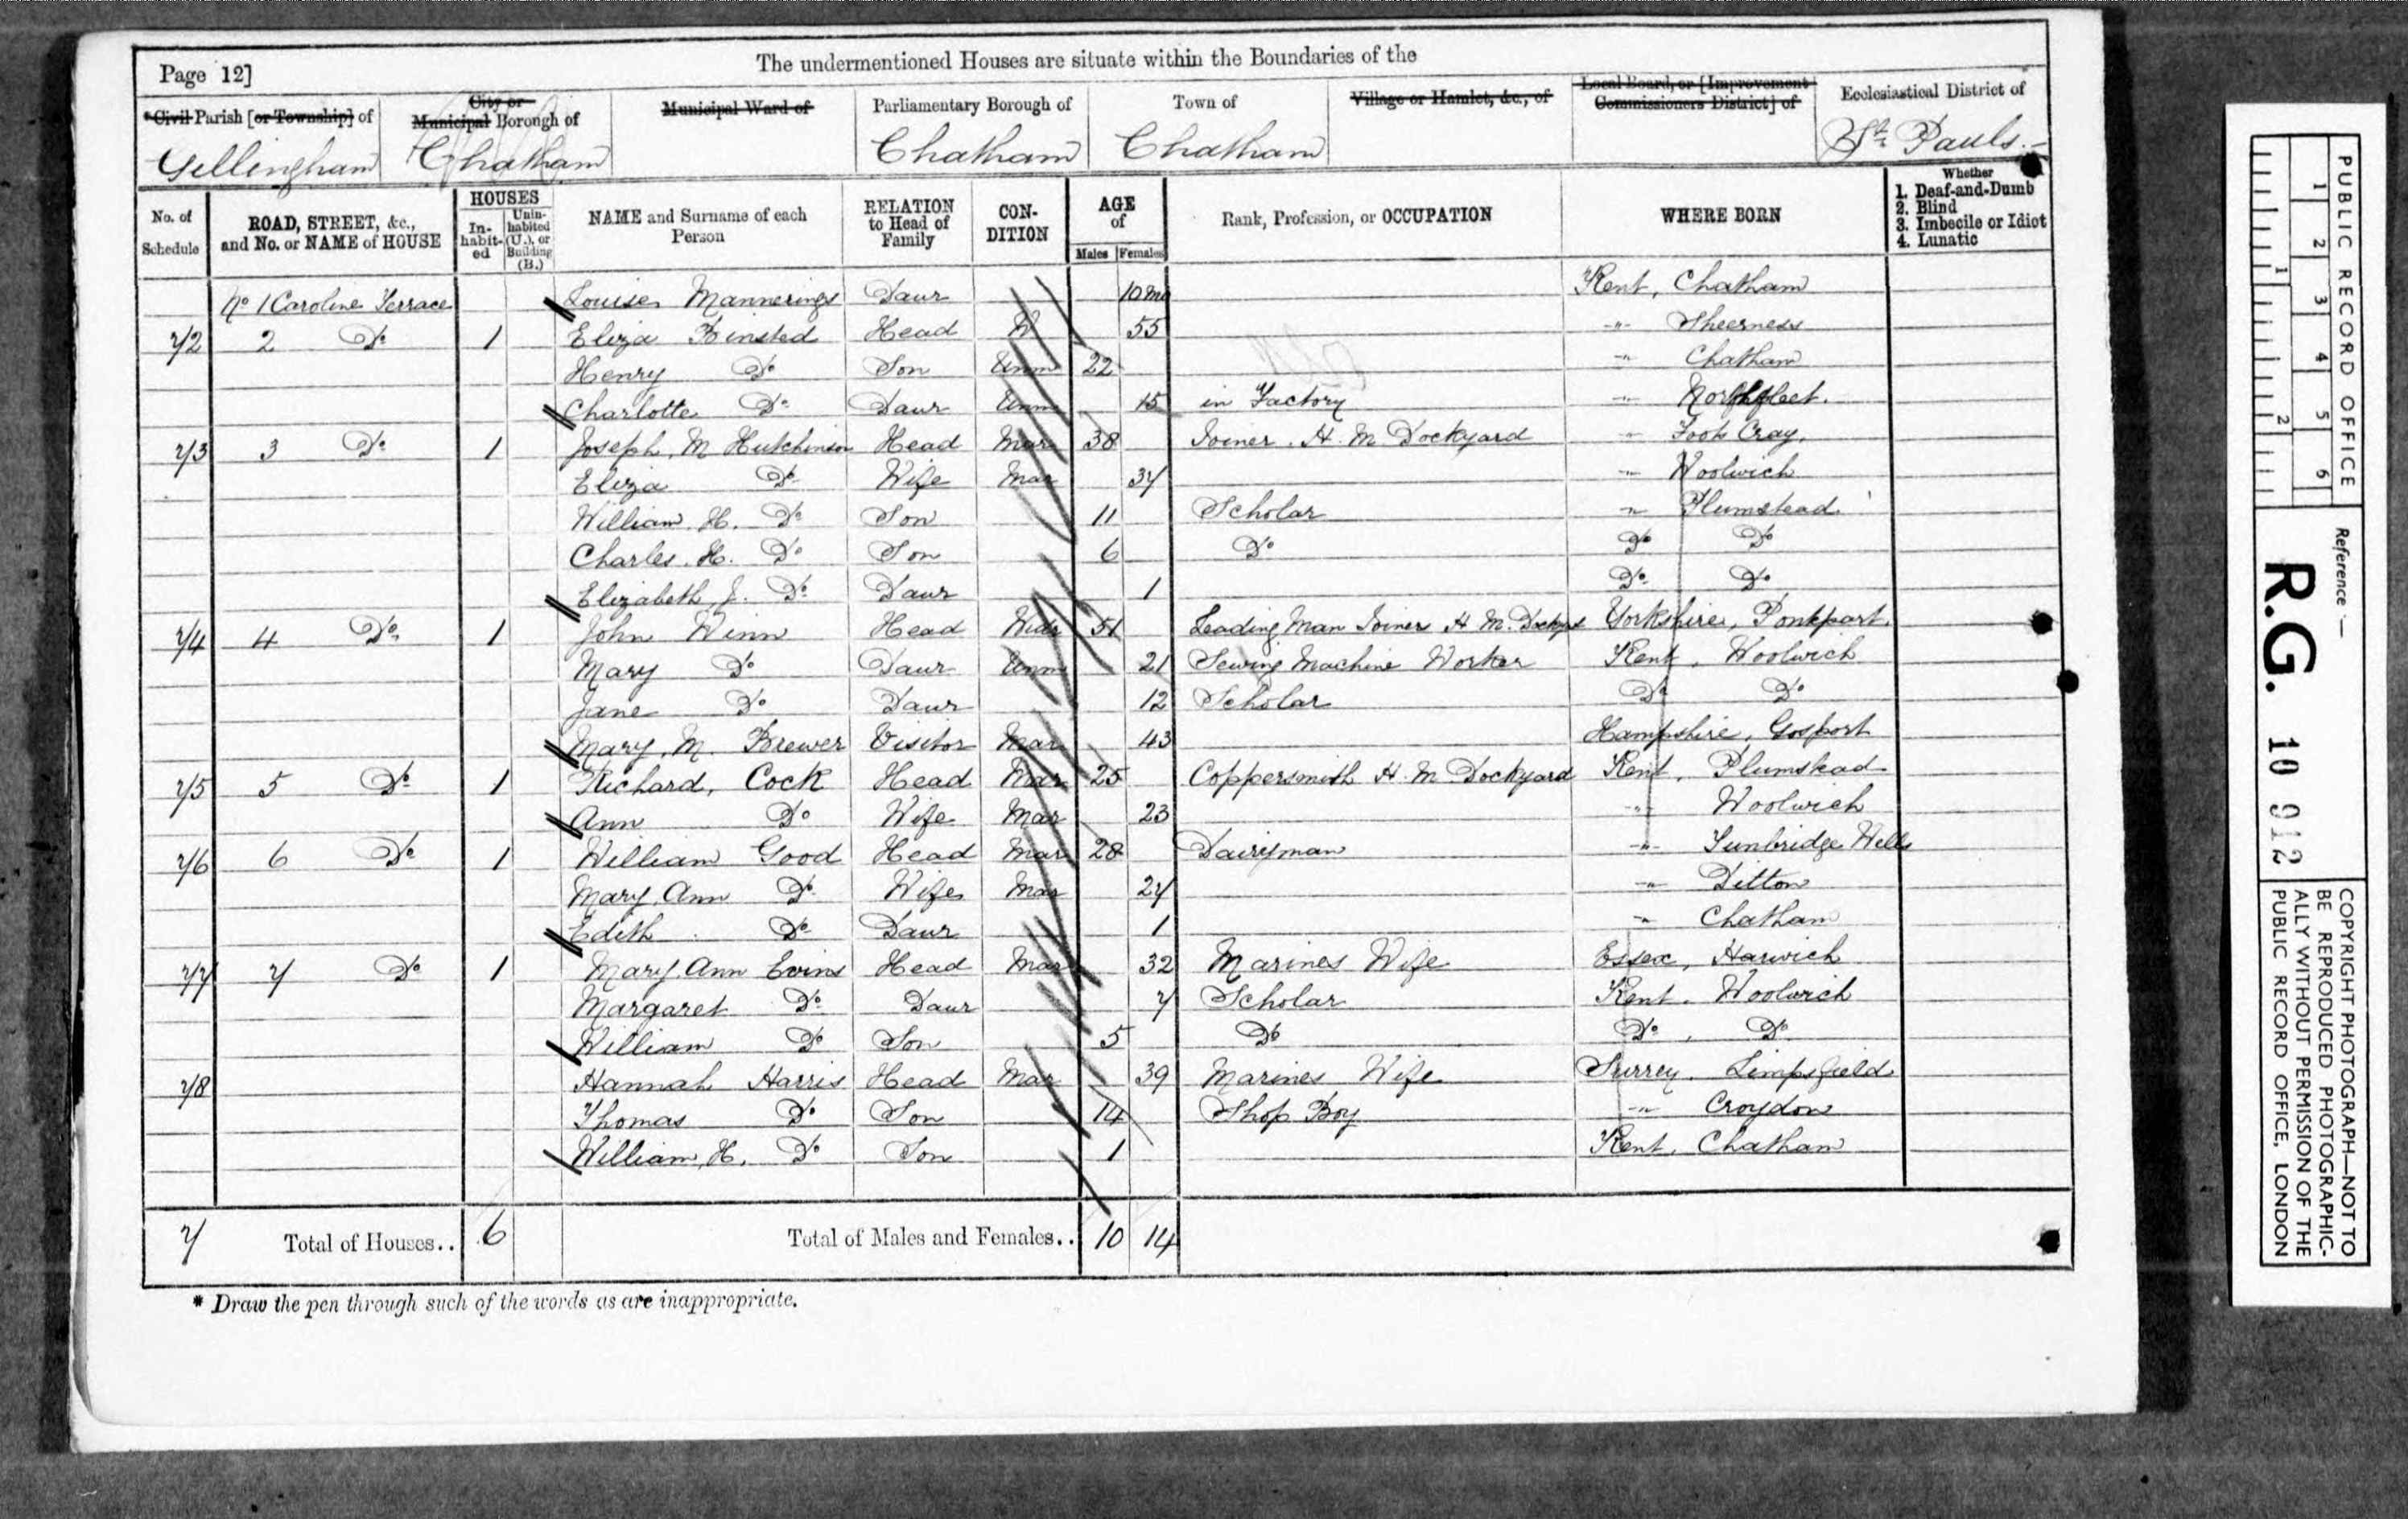 The undermentioned Houses are situate within the Boundaries of the
Page 12]
*Civil Parish [or Township] of
City or Municipal Borough of
Municipal Ward of
Parliamentary Borough of
Town of
Village or Hamlet, &c., of
Local Board, or [Improvement Commissioners District] of
Ecclesiastical District of
Gillingham Chatham Chatham Chatham St. Pauls.
No. of Schedule
ROAD, STREET, &c., and No. or NAME of HOUSE
HOUSES
In-habit-ed
Unin-habited (U.), or Building (B.)
NAME and Surname of each Person
RELATION to Head of Family
CON-DITION
AGE of
Males Females
Rank, Profession, or OCCUPATION
WHERE BORN
Whether
1. Deaf-and-Dumb
2. Blind
3. Imbecile or Idiot
4. Lunatic
No 1 Caroline Terrace Louisa Mannerings Daur 10 mo Kent, Chatham
72 2 Do 1 Eliza Binsted Head W 55 " Sheerness
Henry Do Son Unm 22 " Chatham
Charlotte Do Daur Unm 15 in Factory " Northfleet.
73 3 Do 1 Joseph. M Hutchinson Head Mar 38 Joiner. H. M Dockyard " Foots Cray.
Eliza Do Wife Mar 37 " Woolwich
William. H. Do Son 11 Scholar " Plumstead
Charles. H. Do Son 6 Do Do Do
Elizabeth. J. Do Daur 1 Do Do
74 4 Do 1 John Winn Head Widr 51 Leading Man Joiner H. M. Yorkshire,
Mary Do Daur Unm 21 Sewing Machine Worker Kent, Woolwich
Jane Do Daur 12 Scholar Do Do
Mary. M. Brewer Visitor Mar 43 Hampshire, Gosport
75 5 Do 1 Richard, Cock Head Mar 25 Coppersmith H. M Dockyard Kent, Plumstead
Ann Do Wife Mar 23 " Woolwich
76 6 Do 1 William Good Head Mar 28 Dairyman " Tunbridge Wells
Mary. Ann Do Wife Mar 27 " Ditton
Edith Do Daur 1 " Chatham
77 7 Do 1 Mary. Ann Evins Head Mar 32 Marines Wife Essex, Harwich
Margaret Do Daur 7 Scholar Kent. Woolwich
William Do Son 5 Do Do, Do
78 Hannah Harris Head Mar 39 Marines Wife Surrey. Limpsfield
Thomas Do Son 14 Shop Boy " Croydon
William. H. Do Son 1 Kent. Chatham
7 Total of Houses.. 6 Total of Males and Females.. 10 14
* Draw the pen through such of the words as are inappropriate.
PUBLIC RECORD OFFICE
1 2 3 4 5 6
1 2
Reference:—
R.G. 10 912
COPYRIGHT PHOTOGRAPH—NOT TO
BE REPRODUCED PHOTOGRAPHIC-
ALLY WITHOUT PERMISSION OF THE
PUBLIC RECORD OFFICE, LONDON